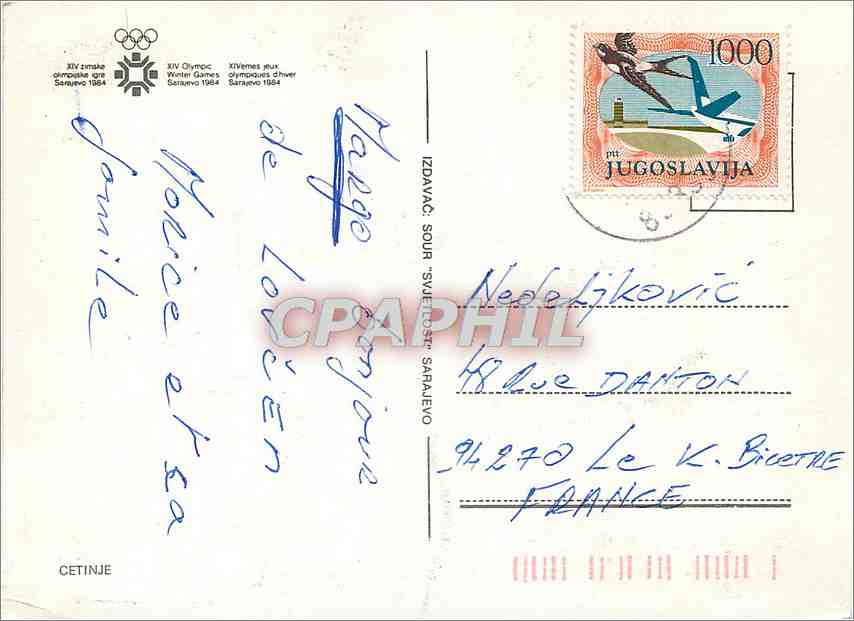 XIV zimske
olimpijske igre
Sarajevo 1984
XIV Olympic
Winter Games
Sarajevo 1984
XIVemes jeux
olympiques d'hiver
Sarajevo 1984
Margo Bonjour
de LOVĆEN
Morice et sa
famile
IZDAVAČ: SOUR "SVJETLOST" SARAJEVO
1000
ptt
JUGOSLAVIJA
Nedeljković
48 Rue DANTON
94270 Le K. BICETRE
FRANCE
CPAPHIL
CETINJE